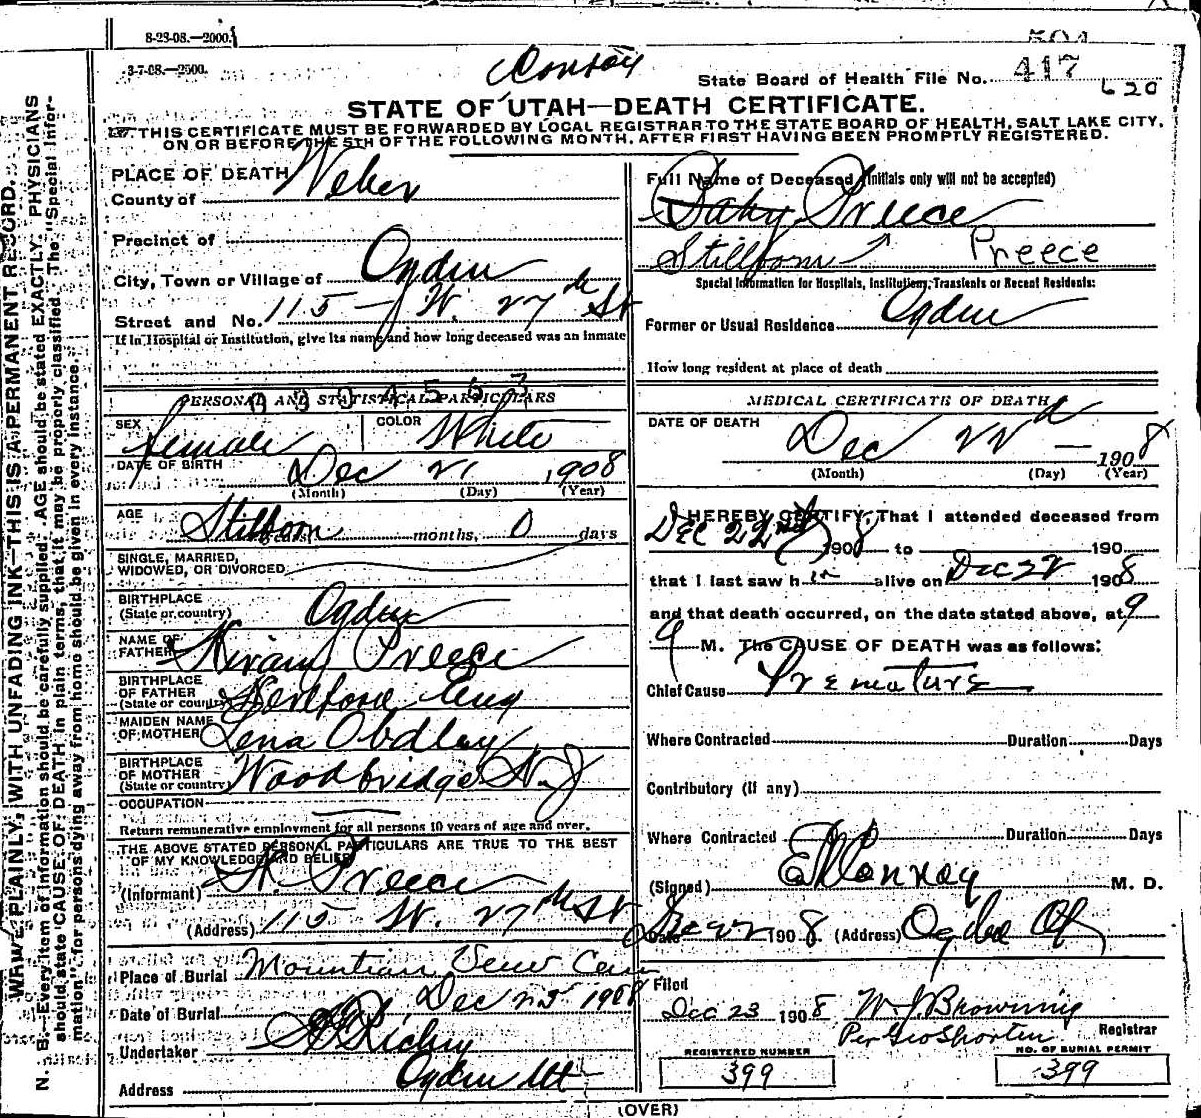 8-23-08.—2000.
3-7-08.—2500.
Conroy
504
State Board of Health File No. 417
620
STATE OF UTAH—DEATH CERTIFICATE.
THIS CERTIFICATE MUST BE FORWARDED BY LOCAL REGISTRAR TO THE STATE BOARD OF HEALTH, SALT LAKE CITY,
ON OR BEFORE THE 5TH OF THE FOLLOWING MONTH, AFTER FIRST HAVING BEEN PROMPTLY REGISTERED.
N. B.—Every item of information should be carefully supplied. AGE should be stated EXACTLY. PHYSICIANS
should state CAUSE OF DEATH in plain terms, that it may be properly classified. The "Special Infor-
mation" for persons dying away from home should be given in every instance.
PLACE OF DEATH
County of Weber
Precinct of
City, Town or Village of Ogden
Street and No. 115 W. 27th St
If in Hospital or Institution, give its name and how long deceased was an inmate
PERSONAL AND STATISTICAL PARTICULARS
SEX female COLOR White
DATE OF BIRTH Dec 21 1908
(Month) (Day) (Year)
AGE Stillborn months, 0 days
SINGLE, MARRIED,
WIDOWED, OR DIVORCED
BIRTHPLACE
(State or country) Ogden
NAME OF
FATHER Hiram Preece
BIRTHPLACE
OF FATHER
(State or country) Herlford Eng
MAIDEN NAME
OF MOTHER Lena
BIRTHPLACE
OF MOTHER
(State or country) Woodbridge N.J
OCCUPATION
Return remunerative employment for all persons 10 years of age and over.
THE ABOVE STATED PERSONAL PARTICULARS ARE TRUE TO THE BEST
OF MY KNOWLEDGE AND BELIEF
(Informant) H. Preece
(Address) 115 W. 27th St
Place of Burial Mountian View Cem
Date of Burial Dec 25 1908
Undertaker Richey
Address Ogden Ut
Full Name of Deceased (Initials only will not be accepted)
Baby Preece
Stillborn Preece
Special Information for Hospitals, Institutions, Transients or Recent Residents:
Former or Usual Residence Ogden
How long resident at place of death
MEDICAL CERTIFICATE OF DEATH
DATE OF DEATH Dec 22d 1908
(Month) (Day) (Year)
I HEREBY CERTIFY, That I attended deceased from
Dec 22nd 1908 to 190
that I last saw h alive on Dec 22 1908
and that death occurred, on the date stated above, at 9
M. The CAUSE OF DEATH was as follows:
Chief Cause Premature
Where Contracted Duration Days
Contributory (If any)
Where Contracted Duration Days
(Signed) E Conroy M. D.
Date Dec 22 1908 (Address) Ogden
Filed
Dec 23 1908 W. J. Browning
Per Geo Shorten Registrar
REGISTERED NUMBER NO. OF BURIAL PERMIT
399 399
(OVER)